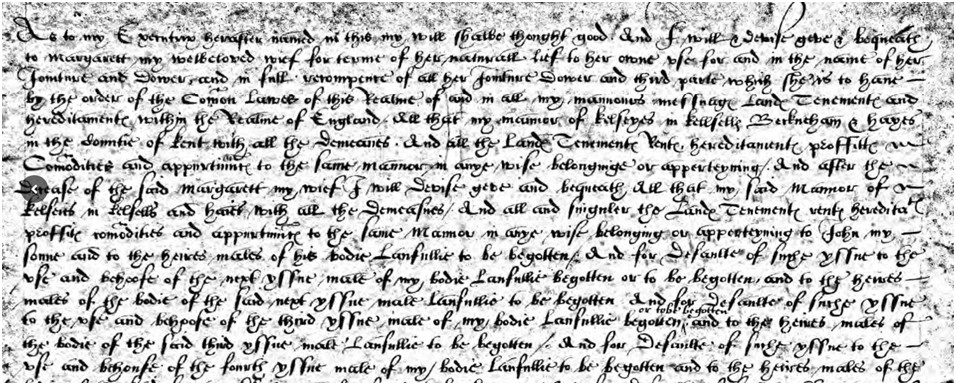 As to my Executrix hereafter named in this my will shalbe thought good. And I will & devise geve & bequeath
to Margarett my welbeloved wief for terme of her naturall lief to her owne use for and in the name of her
Joincture and Dower, and in full recompence of all her Joincture Dower and third parte which she is to have
by the order of the Comon Lawes of this Realme of and in all my mannours messuages Landes Tenementes and
hereditamentes within the Realme of England. All that my mannor of Kelseyes in Beckneham & Hayes
in the Countie of Kent with all the demeanes. And all the Landes Tenementes Rentes hereditamentes proffittes
Comodities and appurtinnces to the same mannor in anye wise belonginge or apperteyning. And after the
decease of the said Margarett my wief I will devise geve and bequeath All that my said Mannor of
Kelseies in and haies with all the demeasnes. And all and singuler the Landes Tenementes rentes hereditamtes
proffittes comodities and appurtinnces to the same Mannor in anye wise belonging or apperteyning to John my
sonne and to the heires males of his bodie Laufullie to be begotten. And for Defaulte of suche yssue to the
use and behoofe of the next yssue male of my bodie Laufullie begotten or to be begotten, and to the heires
males of the bodie of the said next yssue male Laufullie to be begotten And for Defaulte of suche yssue
to the use and behoofe of the third yssue male of my bodie Laufullie begotten or to be begotten, and to the heires males of
the bodie of the said third yssue male Laufullie to be begotten. And for Defaulte of suche yssue to the
use and behoufe of the fourth yssue male of my bodie Laufullie to be begotten and to the heires males of the